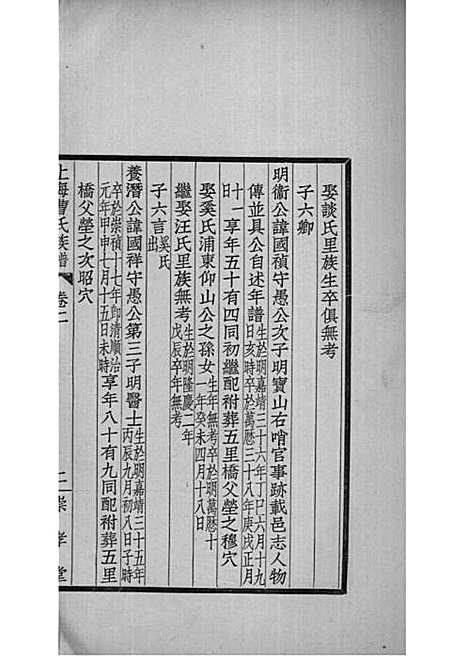 娶談氏里族生卒俱無考
子六卿
明衞公諱國禎守愚公次子明寶山右哨官事跡載邑志人物
傳並具公自述年譜生於明嘉靖三十六年丁巳六月十九日亥時卒於萬曆三十八年庚戌正月
十一日享年五十有四同初繼配祔葬五里橋父塋之穆穴
娶奚氏浦東仰山公之孫女生年無考卒萬曆十一年癸未四月十八日
繼娶汪氏里族無考生於明隆慶二年戊辰卒年無考
子六言奚氏出
養潛公諱國祥守愚公第三子明醫士生於明嘉靖三十五年丙辰九月初八日子時
卒於崇禎十七年即清順治元年甲申七月十五日未時享年八十有九同配祔葬五里
橋父塋之次昭穴
上海曹氏族譜 卷二 二 崇孝堂